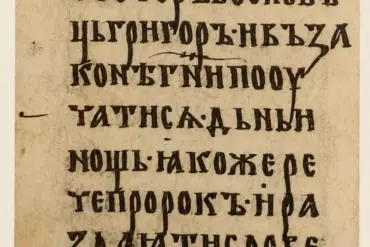 цьгригоръ·ивъза
конѣгнипооу
чатисѧ·дьньи
нощь·ꙗкожере
чепророкъ·ира